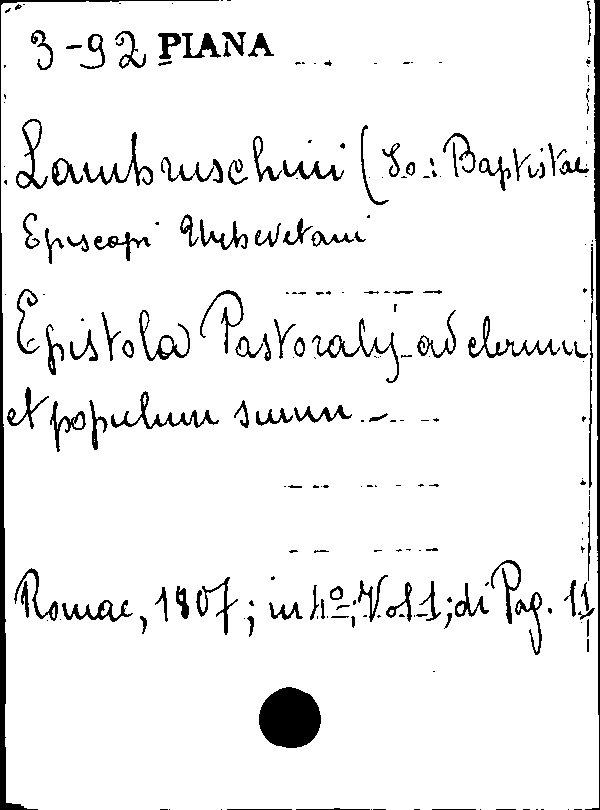 3-92 PIANA
Lambruschini (Io: Baptistae
Episcopi Urbevetani
Epistola Pastoralis ad clerum
et populum suum -
Romae, 1807; in 4º; Vol 1; di Pag. 11